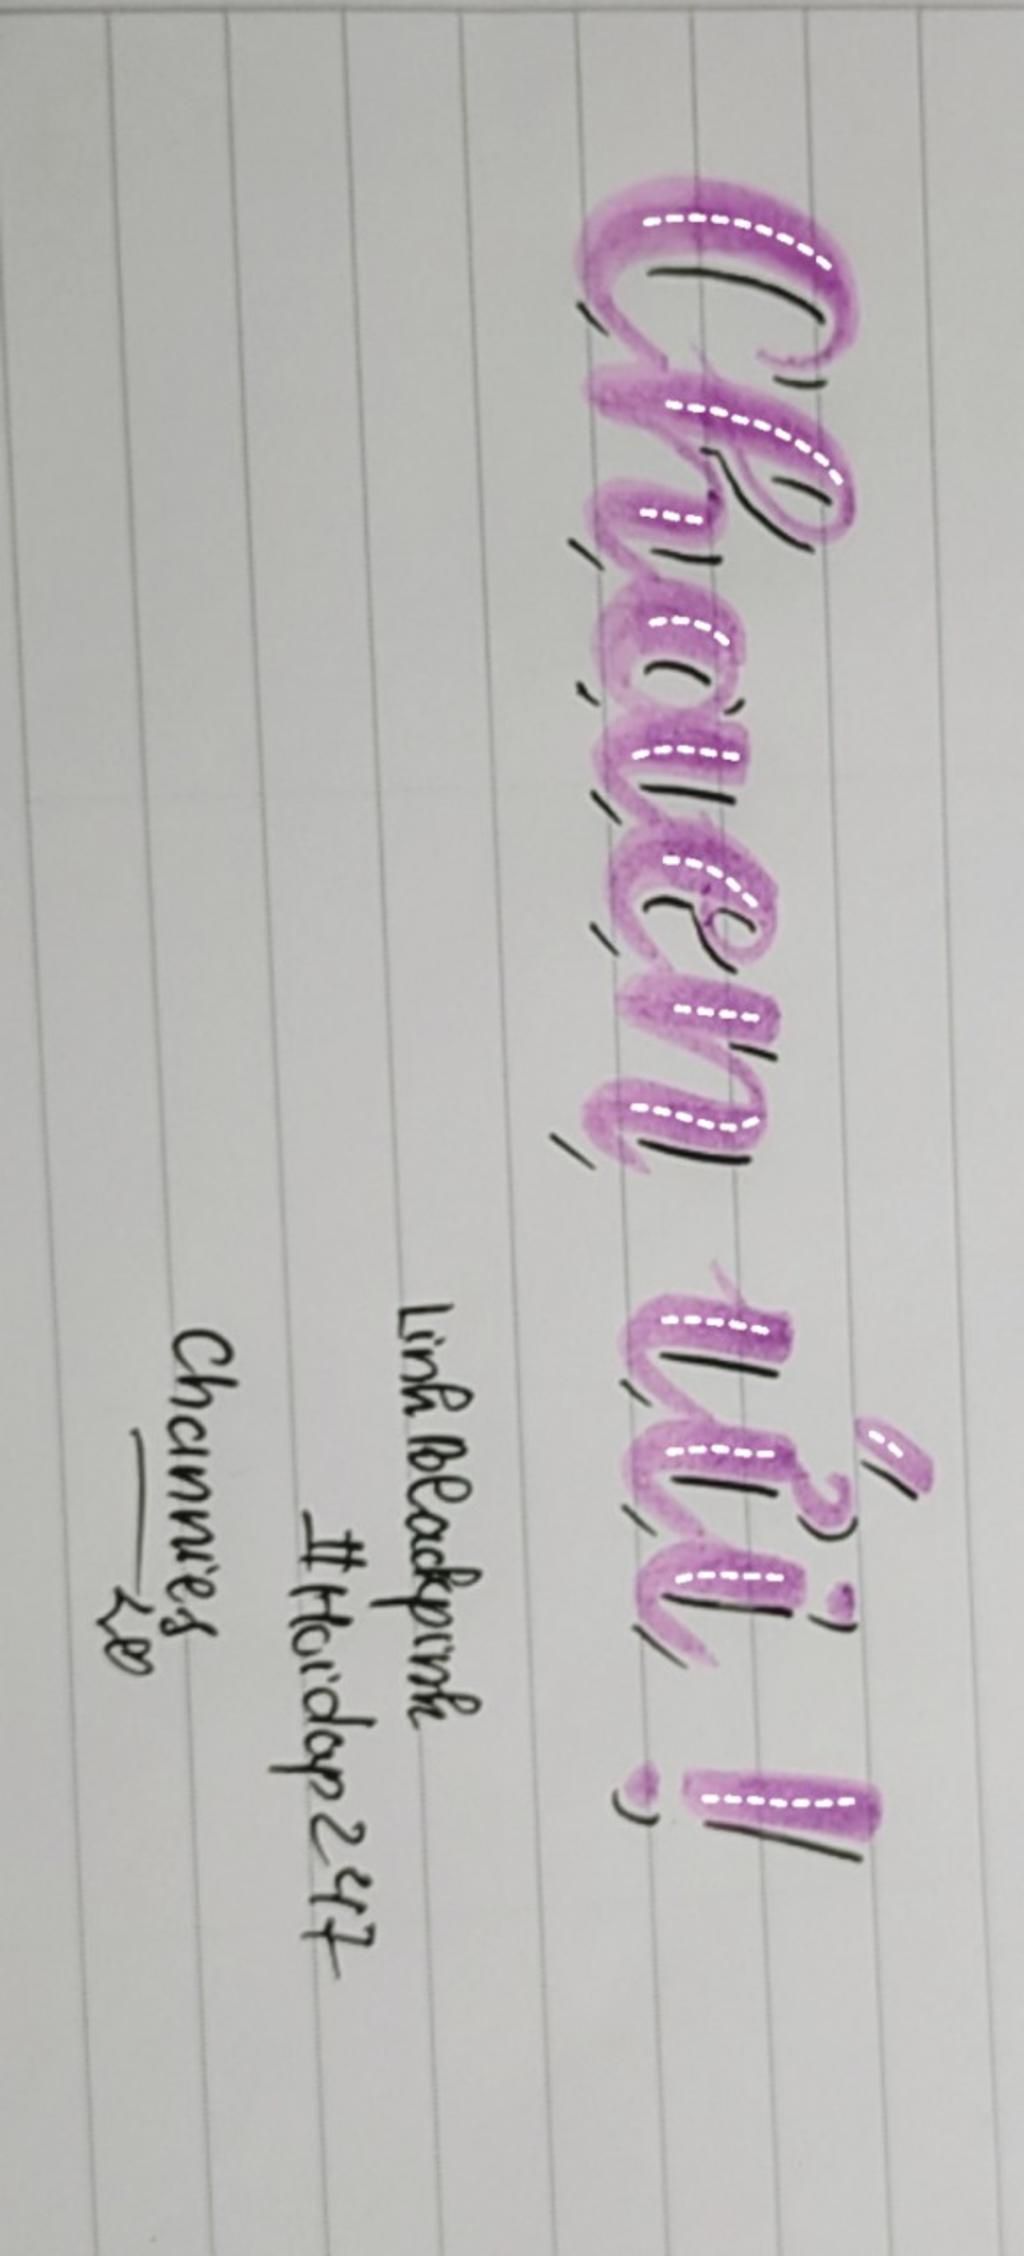 Chaen ứi !
Linh Blackpink
#Hoidap247
Channies